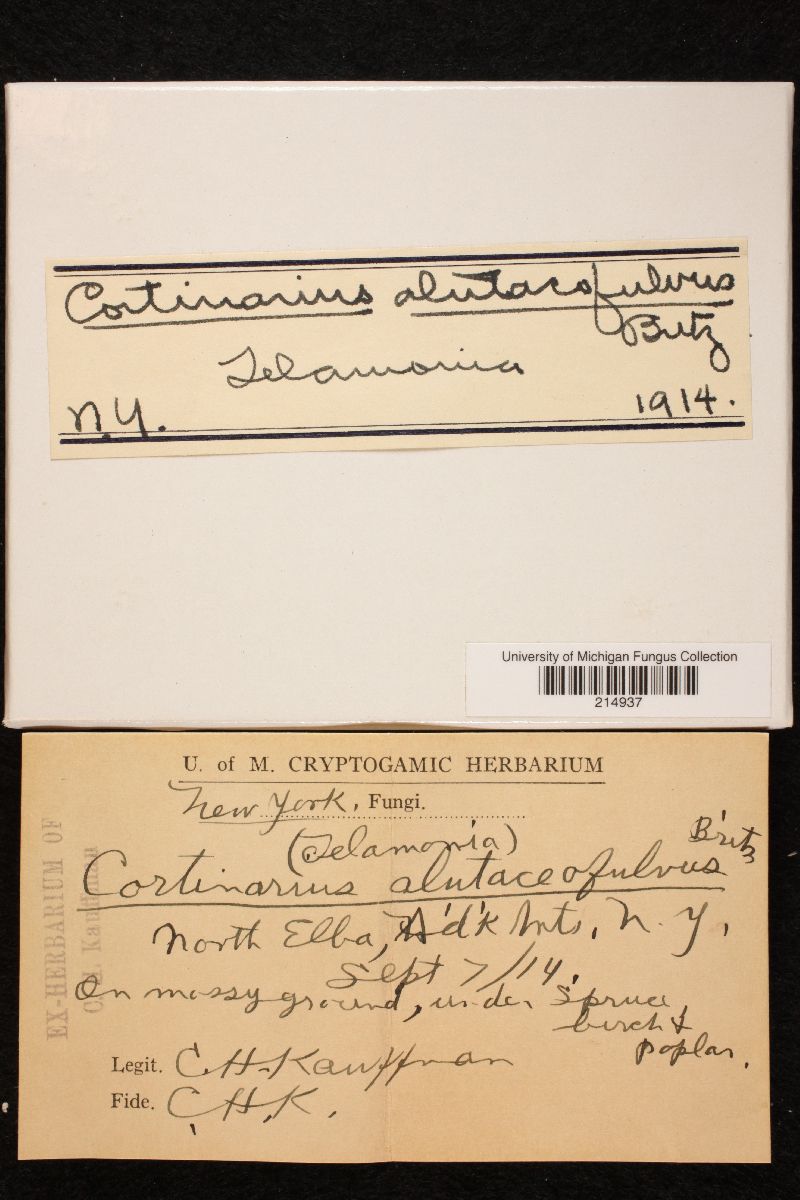 Cortinarius alutaceofulvus
Britz
Telamonia
N.Y. 1914.
University of Michigan Fungus Collection
214937
U. of M. CRYPTOGAMIC HERBARIUM
New York, Fungi.
(Telamonia) Britz
Cortinarius alutaceofulvus
North Elba, Ad'k Mts, N. Y,
Sept 7/14.
On mossy ground, under Spruce
birch &
poplar.
Legit. C.H. Kauffman
Fide. C.H.K.
EX-HERBARIUM OF
C. H. Kauffman